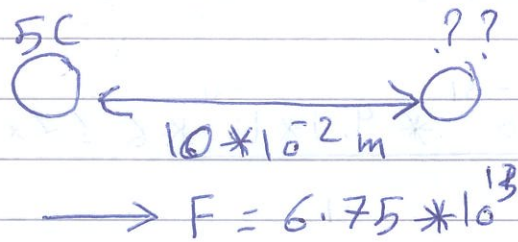 5C ??
10*10⁻² m
F = 6.75 *10¹³